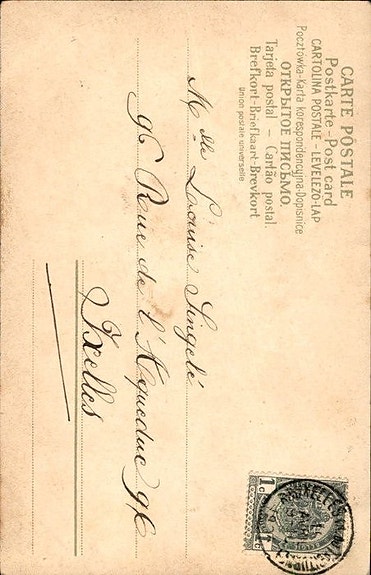 CARTE POSTALE
Postkarte - Post card
CARTOLINA POSTALE - LEVELEZŐ-LAP
Pocztówka-Karta korespondencyjna-Dopisnice
ОТКРЫТОЕ ПИСЬМО.
Tarjeta postal - Cartão postal
Brefkort-Briefkaart-Brevkort
Union postale universelle
Mlle Louise Singelé
96 Rue de l'Aqueduc 96
Ixelles
1c 1c
BRUXELLES